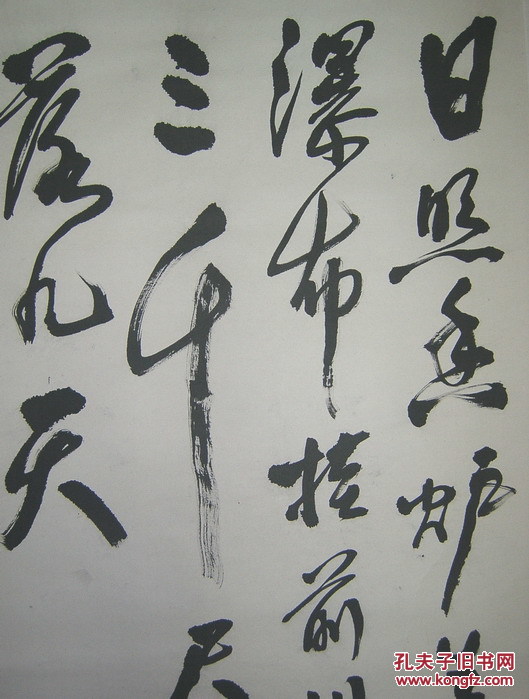 日照香炉生
瀑布挂前川
三千尺
落九天
孔夫子旧书网
www.kongfz.com